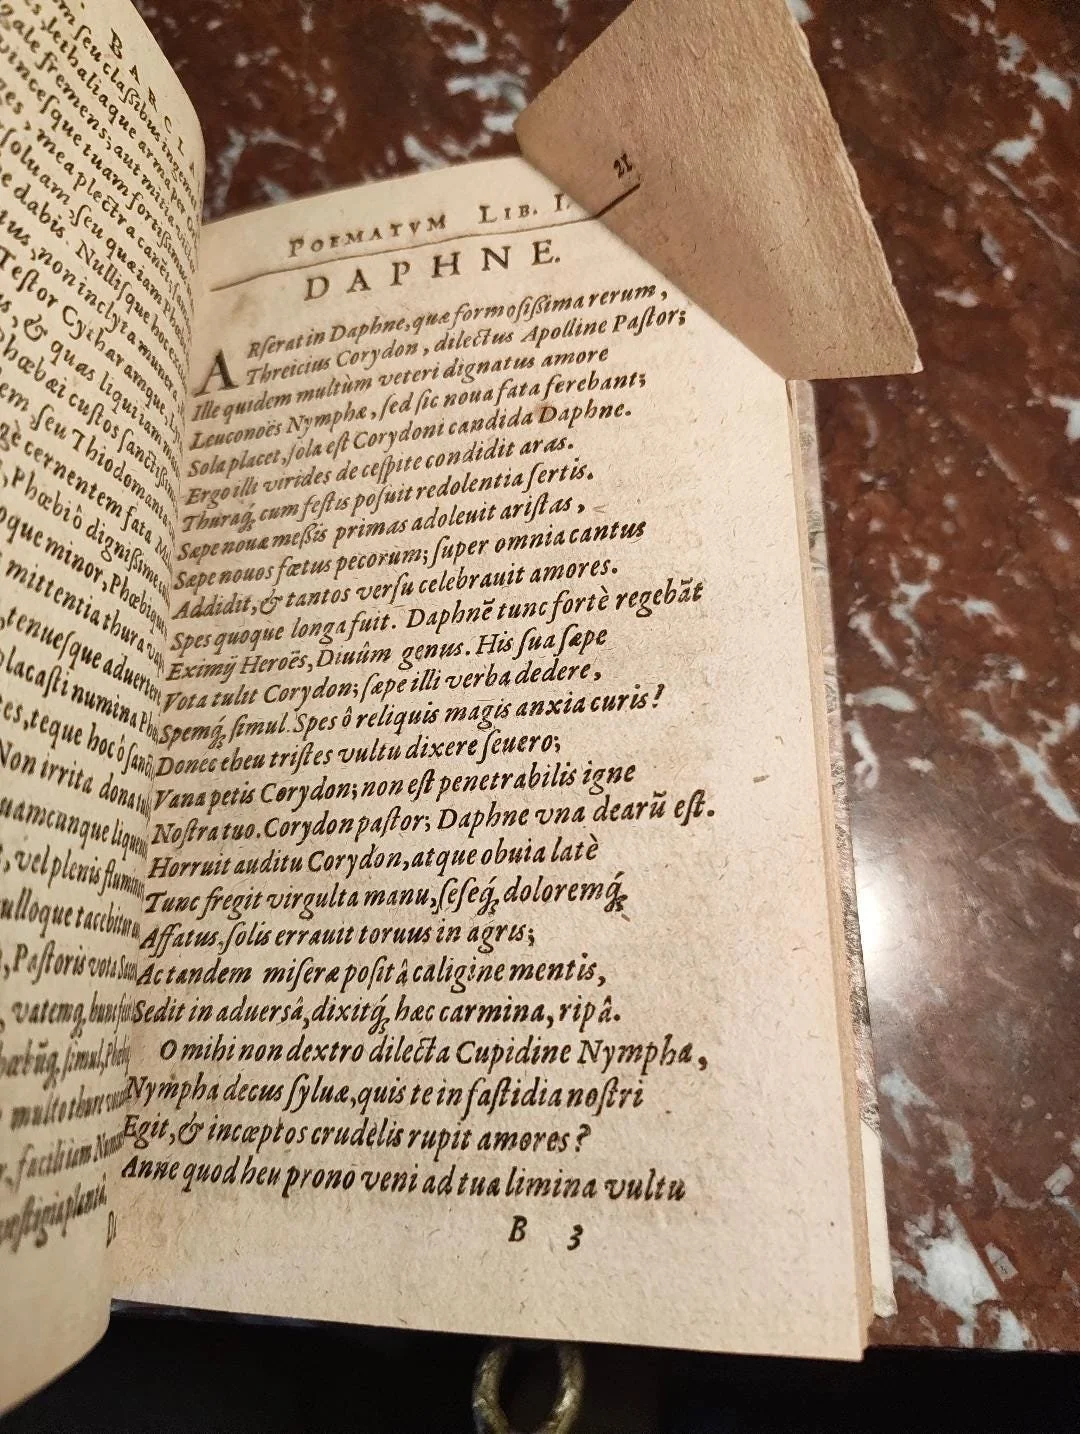 BARCLAI
m seu classibus ingens
s, lethaliaque arma
gale fremens; aut mitia
vincesque tuam fortissim
ges, mea plectra canēt;
soluam, seu quæ iam Phœ
e dabis. Nullisque hoc
tus, non inclyta munera
Testor Cytharamque, Ly
s, & quas liqui iam
Phœbæi custos sanctissim
em, seu Thiodomanta
gè cernentem fata
, Phœbiô dignissime
oque minor, Phœbique
mittentia thura
, tenuesque aduerte
placasti numina
es, teque hoc ô san
Non irrita dona
uamcunque lique
, vel plenis flumin
ulloque tacebitur
, Pastoris vota
, vatemq; hunc
simul, Phœb
multo thure
r, facilium Num
vestigia plantâ
21
POEMATVM LIB. I.
DAPHNE.
ARserat in Daphne, quæ formosissima rerum,
Threicius Corydon, dilectus Apolline Pastor;
Ille quidem multùm veteri dignatus amore
Leuconoës Nymphæ, sed sic noua fata ferebant;
Sola placet, sola est Corydoni candida Daphne.
Ergo illi virides de cespite condidit aras.
Thuraq; cum festis posuit redolentia sertis.
Sæpe nouæ messis primas adoleuit aristas,
Sæpe nouos fœtus pecorum; super omnia cantus
Addidit, & tantos versu celebrauit amores.
Spes quoque longa fuit. Daphnē tunc fortè regebāt
Eximij Heroës, Diuûm genus. His sua sæpe
Vota tulit Corydon; sæpe illi verba dedere,
Spemq; simul. Spes ô reliquis magis anxia curis!
Donec eheu tristes vultu dixere seuero;
Vana petis Corydon; non est penetrabilis igne
Nostra tuo. Corydon pastor; Daphne vna dearū est.
Horruit auditu Corydon, atque obuia latè
Tunc fregit virgulta manu, seseq; doloremq;
Affatus, solis errauit toruus in agris;
Ac tandem miseræ positâ caligine mentis,
Sedit in aduersâ, dixitq; hæc carmina, ripâ.
O mihi non dextro dilecta Cupidine Nympha,
Nympha decus syluæ, quis te in fastidia nostri
Egit, & incœptos crudelis rupit amores?
Anne quod heu prono veni ad tua limina vultu
B 3